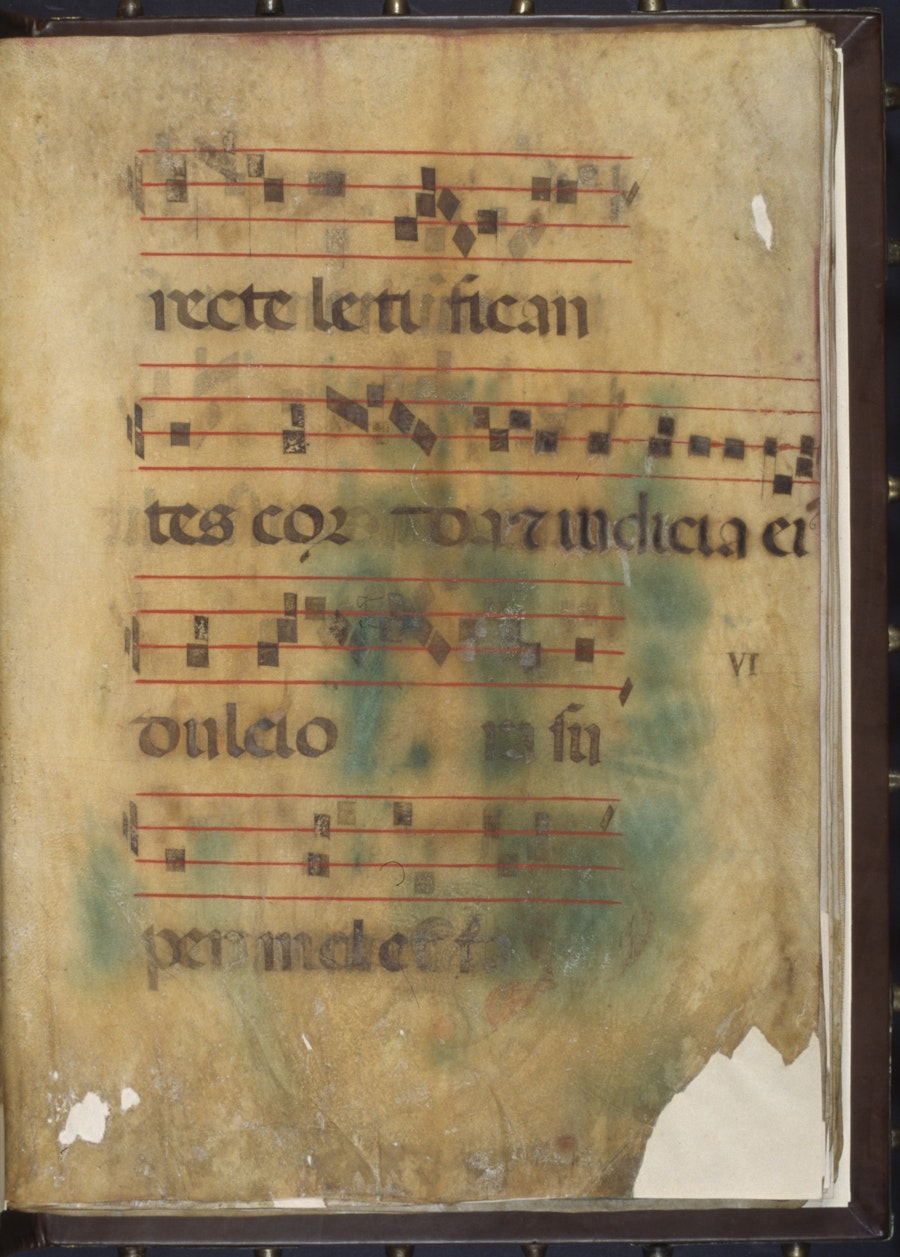 recte leti fican
tes cor da ⁊ iudicia ei
dulcio su
VI
per mel et fa